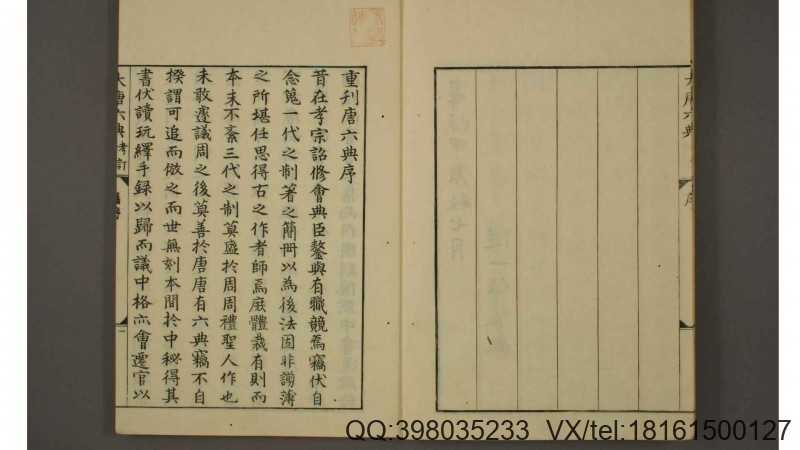 重刋唐六典序
昔在孝宗詔修會典臣鏊與有職競焉竊伏自
念蒐一代之制著之簡冊以為後法固非謭薄
之所堪任思得古之作者師焉庶體裁有則而
本末不紊三代之制莫盛於周周禮聖人作也
未敢遽議周之後莫善於唐唐有六典竊不自
揆謂可追而倣之而世無刻本閒於中秘得其
書伏讀玩繹手録以歸而議中格亦會遷官以
大唐六典
QQ:398035233 VX/tel:18161500127